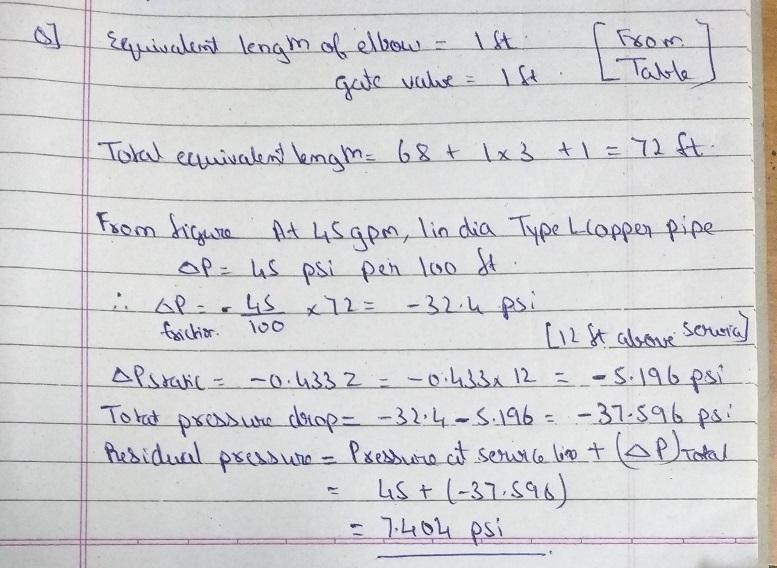 Q] Equivalent length of elbow = 1 ft. [From
gate valve = 1 ft. Table]
Total equivalent length = 68 + 1x3 + 1 = 72 ft.
From figure At 45 gpm, 1in dia Type L copper pipe
ΔP = 45 psi per 100 ft.
∴ ΔP friction = -45/100 x 72 = -32.4 psi
[12 ft above service]
ΔPstatic = -0.433 Z = -0.433 x 12 = -5.196 psi
Total pressure drop = -32.4 - 5.196 = -37.596 psi
Residual pressure = Pressure at service line + (ΔP)Total
= 45 + (-37.596)
= 7.404 psi